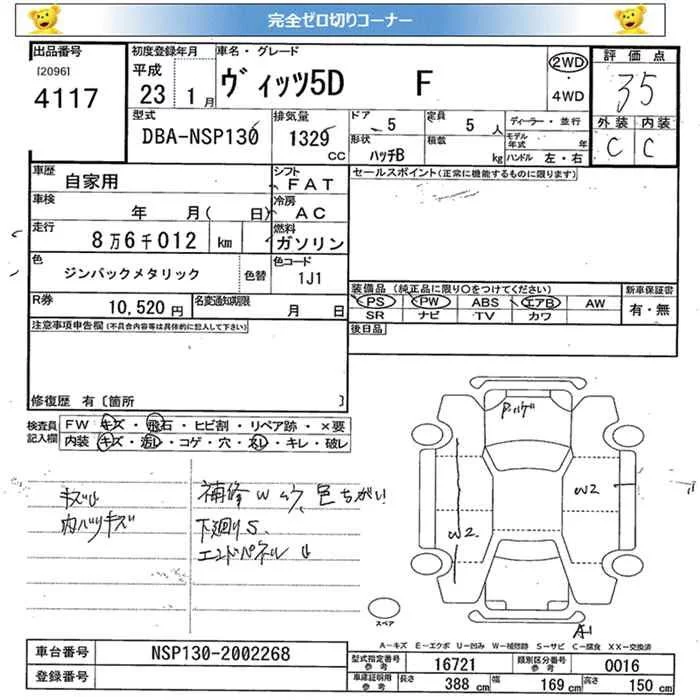 完全ゼロ切りコーナー
出品番号
[2096]
4117
初度登録年月
平成
23 1月
車名・グレード
ヴィッツ5D F
2WD
・
4WD
評価点
35
外装 内装
C C
型式
DBA-NSP130
排気量
1329
CC
ドア
5
定員
5 人
ディーラー・並行
形状
ハッチB
積載
kg
モデル年式 年
ハンドル 左・右
車歴
自家用
シフト
FAT
車検
年 月( 日)
冷房
AC
走行
8万6千012 km
燃料
ガソリン
色
ジンバックメタリック
色替
色コード
1J1
R券
10,520 円
名変通知期限
月 日
セールスポイント(正常に機能するものに限ります)
装備品 (純正品に限り○をつけてください)
PS PW ABS エアB AW
SR ナビ TV カワ
新車保証書
有・無
後日品
注意事項申告欄 (不具合内容等は具体的に記入して下さい)
修復歴 有〔箇所 〕
検査員記入欄
FW キズ・飛石・ヒビ割・リペア跡・×要
内装・キズ・汚れ・コゲ・穴・スレ・キレ・破レ
キズU
内バリキズ
補修W ムラ、色ちがい
下廻りS.
エンドパネルU
W2
W2
A1
スペア
A-キズ E-エクボ U-凹み W-補修跡 S-サビ C-腐食 XX-交換済
車台番号
NSP130-2002268
登録番号
型式指定番号
参考
16721
類別区分番号
参考
0016
車庫証明用
参考
長さ
388 cm
幅
169 cm
高さ
150 cm